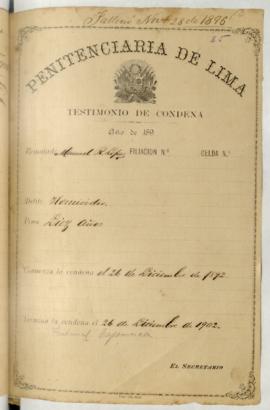 Falleció Nov. 28 de 1896
25
PENITENCIARIA DE LIMA
TESTIMONIO DE CONDENA
Año de 189
Rematado Manuel R. López FILIACION N.º CELDA N.º
Delito Homicidio
Pena Diez Años
Comienza la condena el 26 de Diciembre de 1892
Termina la condena el 26 de Diciembre de 1902
EL SECRETARIO